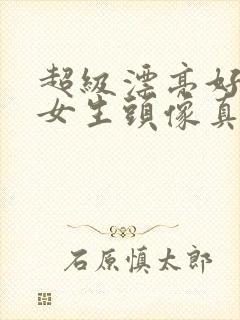 超級漂亮好
女生頭像真
石原慎太郎